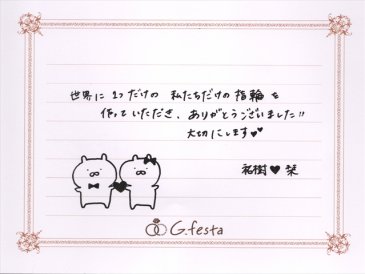 世界に1つだけの 私たちだけの指輪を
作っていただき、ありがとうございました!!
大切にします♥♥
祐樹♥栞
G.festa